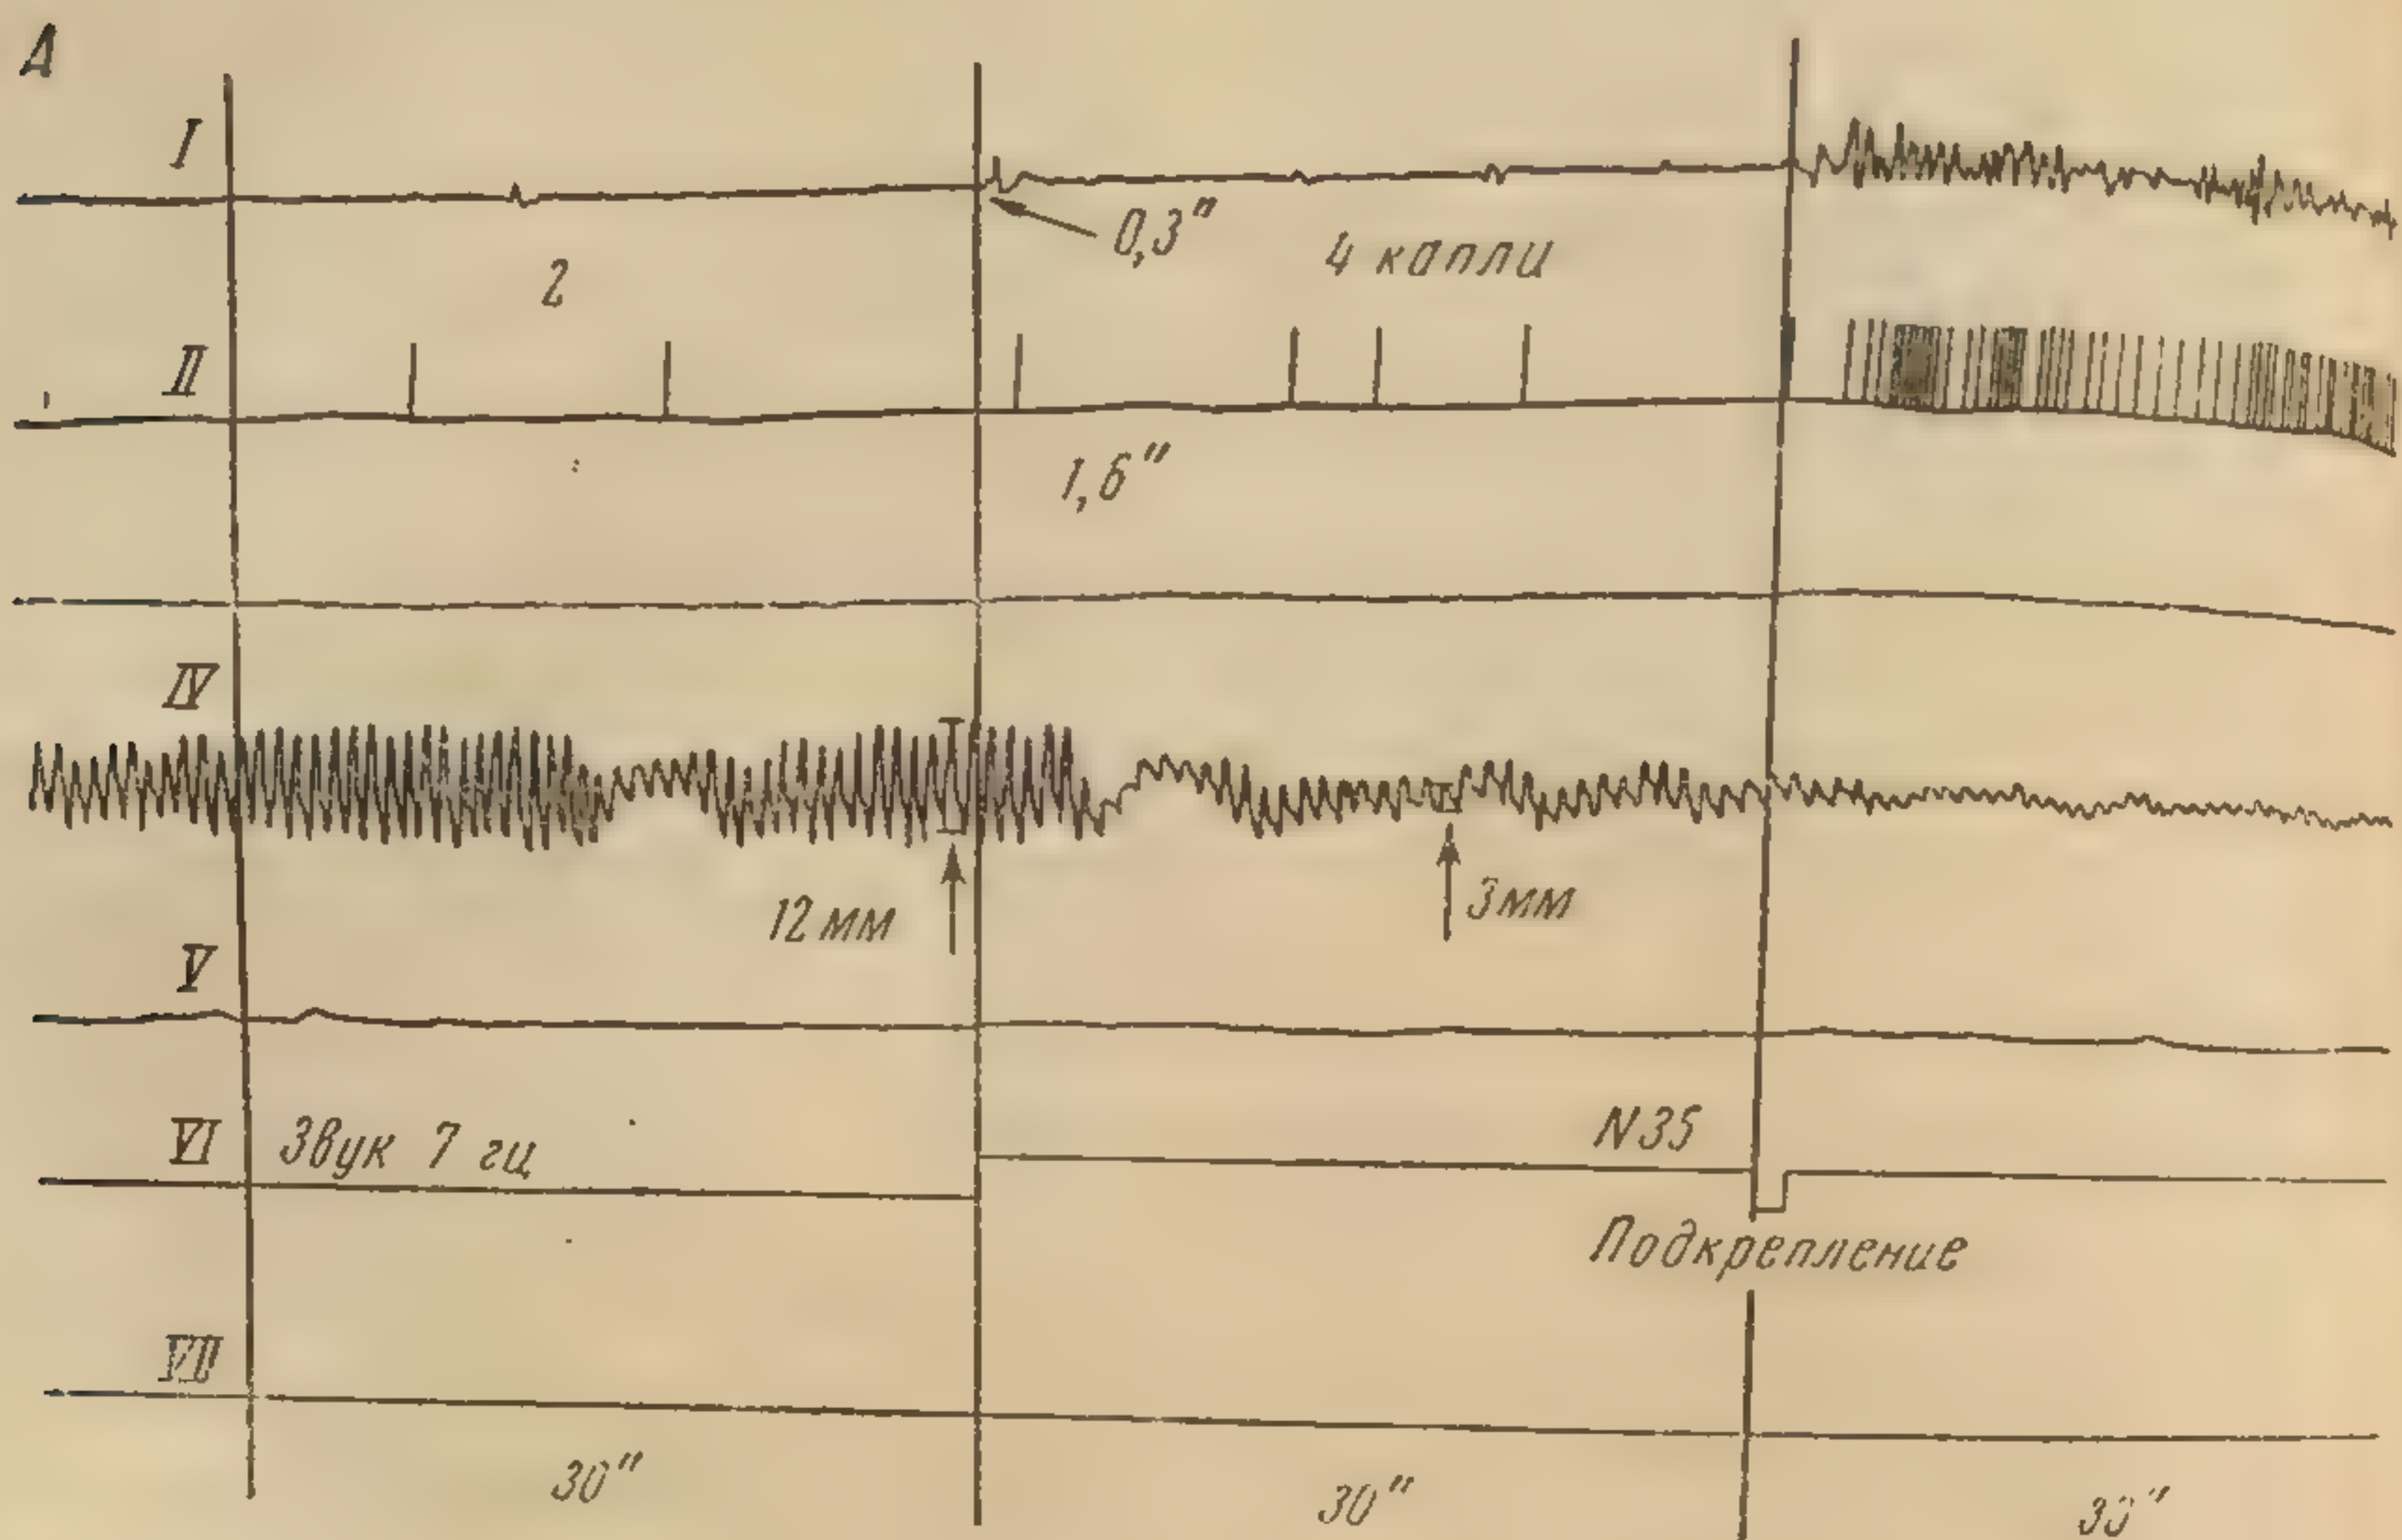 А
I
0,3"
2
4 капли
II
1,6"
IV
12 мм
3 мм
V
VI Звук 7 гц
N35
Подкрепление
VII
30"
30"
30"